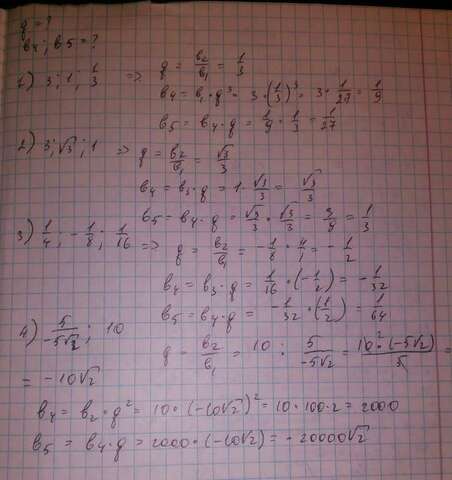 q = ?
b4; b5 = ?
1) 3; 1; 1/3 => q = b2/b1 = 1/3
b4 = b1 · q³ = 3 · (1/3)³ = 3 · 1/27 = 1/9
b5 = b4 · q = 1/9 · 1/3 = 1/27
2) 3; √3; 1 => q = b2/b1 = √3/3
b4 = b3 · q = 1 · √3/3 = √3/3
b5 = b4 · q = √3/3 · √3/3 = 3/9 = 1/3
3) 1/4; -1/8; 1/16 => q = b2/b1 = -1/8 · 4/1 = -1/2
b4 = b3 · q = 1/16 · (-1/2) = -1/32
b5 = b4 · q = -1/32 · (1/2) = 1/64
4) 5/-5√2; 10
q = b2/b1 = 10 : 5/-5√2 = 10 · (-5√2)/5 =
= -10√2
b4 = b2 · q² = 10 · (-10√2)² = 10 · 100 · 2 = 2000
b5 = b4 · q = 2000 · (-10√2) = -20000√2